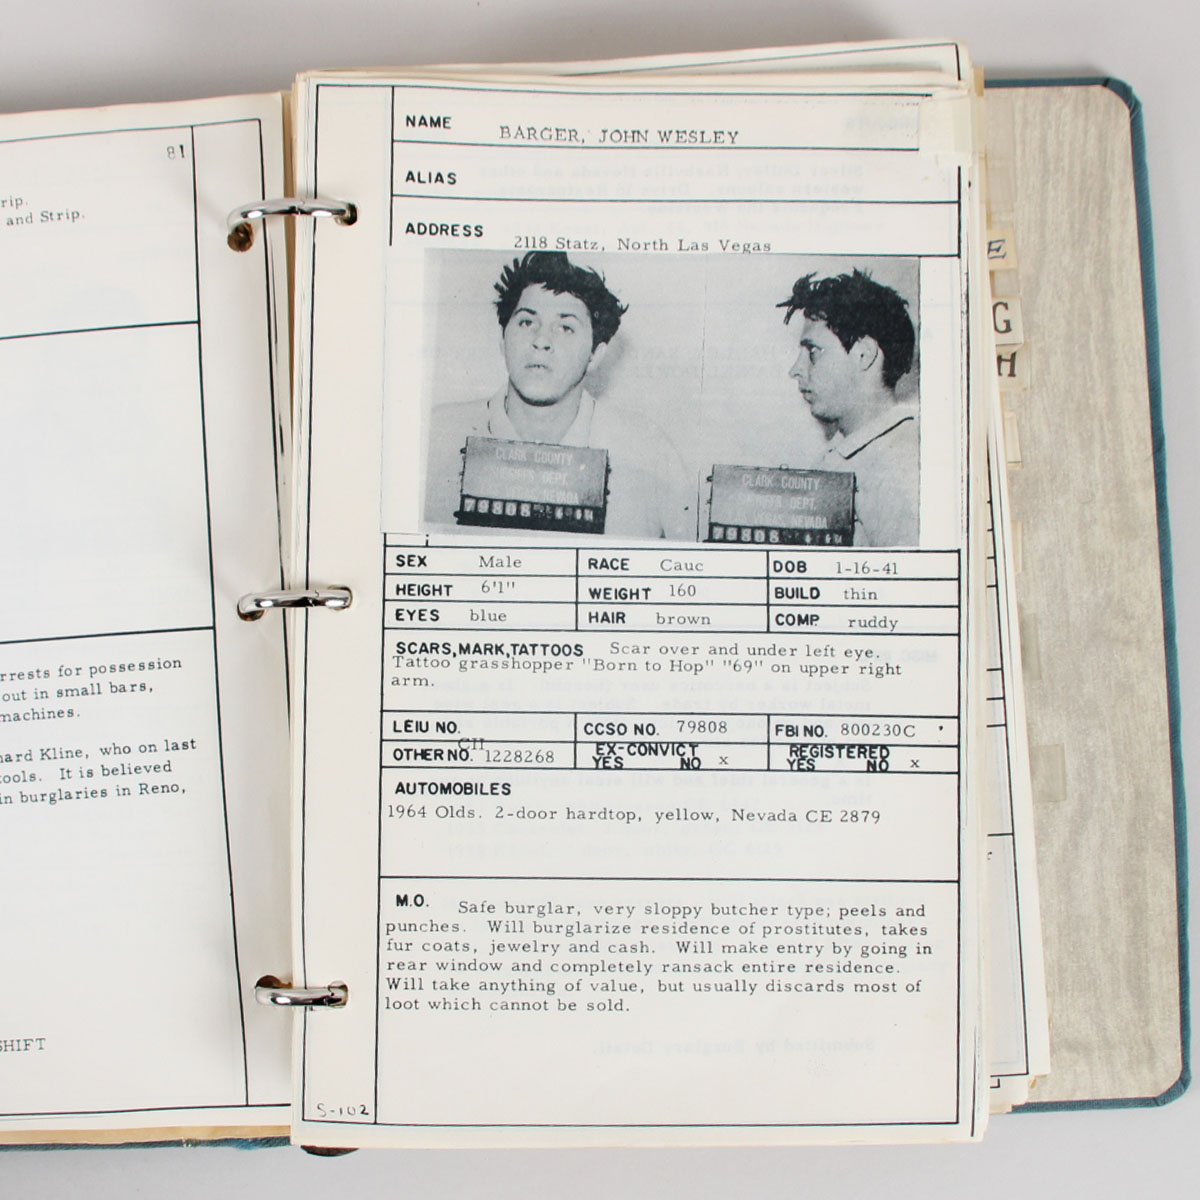 81
rip.
and Strip.
rrests for possession
out in small bars,
machines.
hard Kline, who on last
tools. It is believed
in burglaries in Reno,
SHIFT
NAME BARGER, JOHN WESLEY
ALIAS
ADDRESS 2118 Statz, North Las Vegas
CLARK COUNTY
SHERIFFS DEPT.
NEVADA
79808
CLARK COUNTY
SHERIFFS DEPT.
VEGAS NEVADA
79808
SEX Male RACE Cauc DOB 1-16-41
HEIGHT 6'1" WEIGHT 160 BUILD thin
EYES blue HAIR brown COMP. ruddy
SCARS,MARK,TATTOOS Scar over and under left eye.
Tattoo grasshopper "Born to Hop" "69" on upper right
arm.
LEIU NO. CCSO NO. 79808 FBI NO. 800230C
OTHER NO. CII 1228268 EX-CONVICT YES NO x REGISTERED YES NO x
AUTOMOBILES
1964 Olds. 2-door hardtop, yellow, Nevada CE 2879
M.O. Safe burglar, very sloppy butcher type; peels and
punches. Will burglarize residence of prostitutes, takes
fur coats, jewelry and cash. Will make entry by going in
rear window and completely ransack entire residence.
Will take anything of value, but usually discards most of
loot which cannot be sold.
S-102
E
G
H